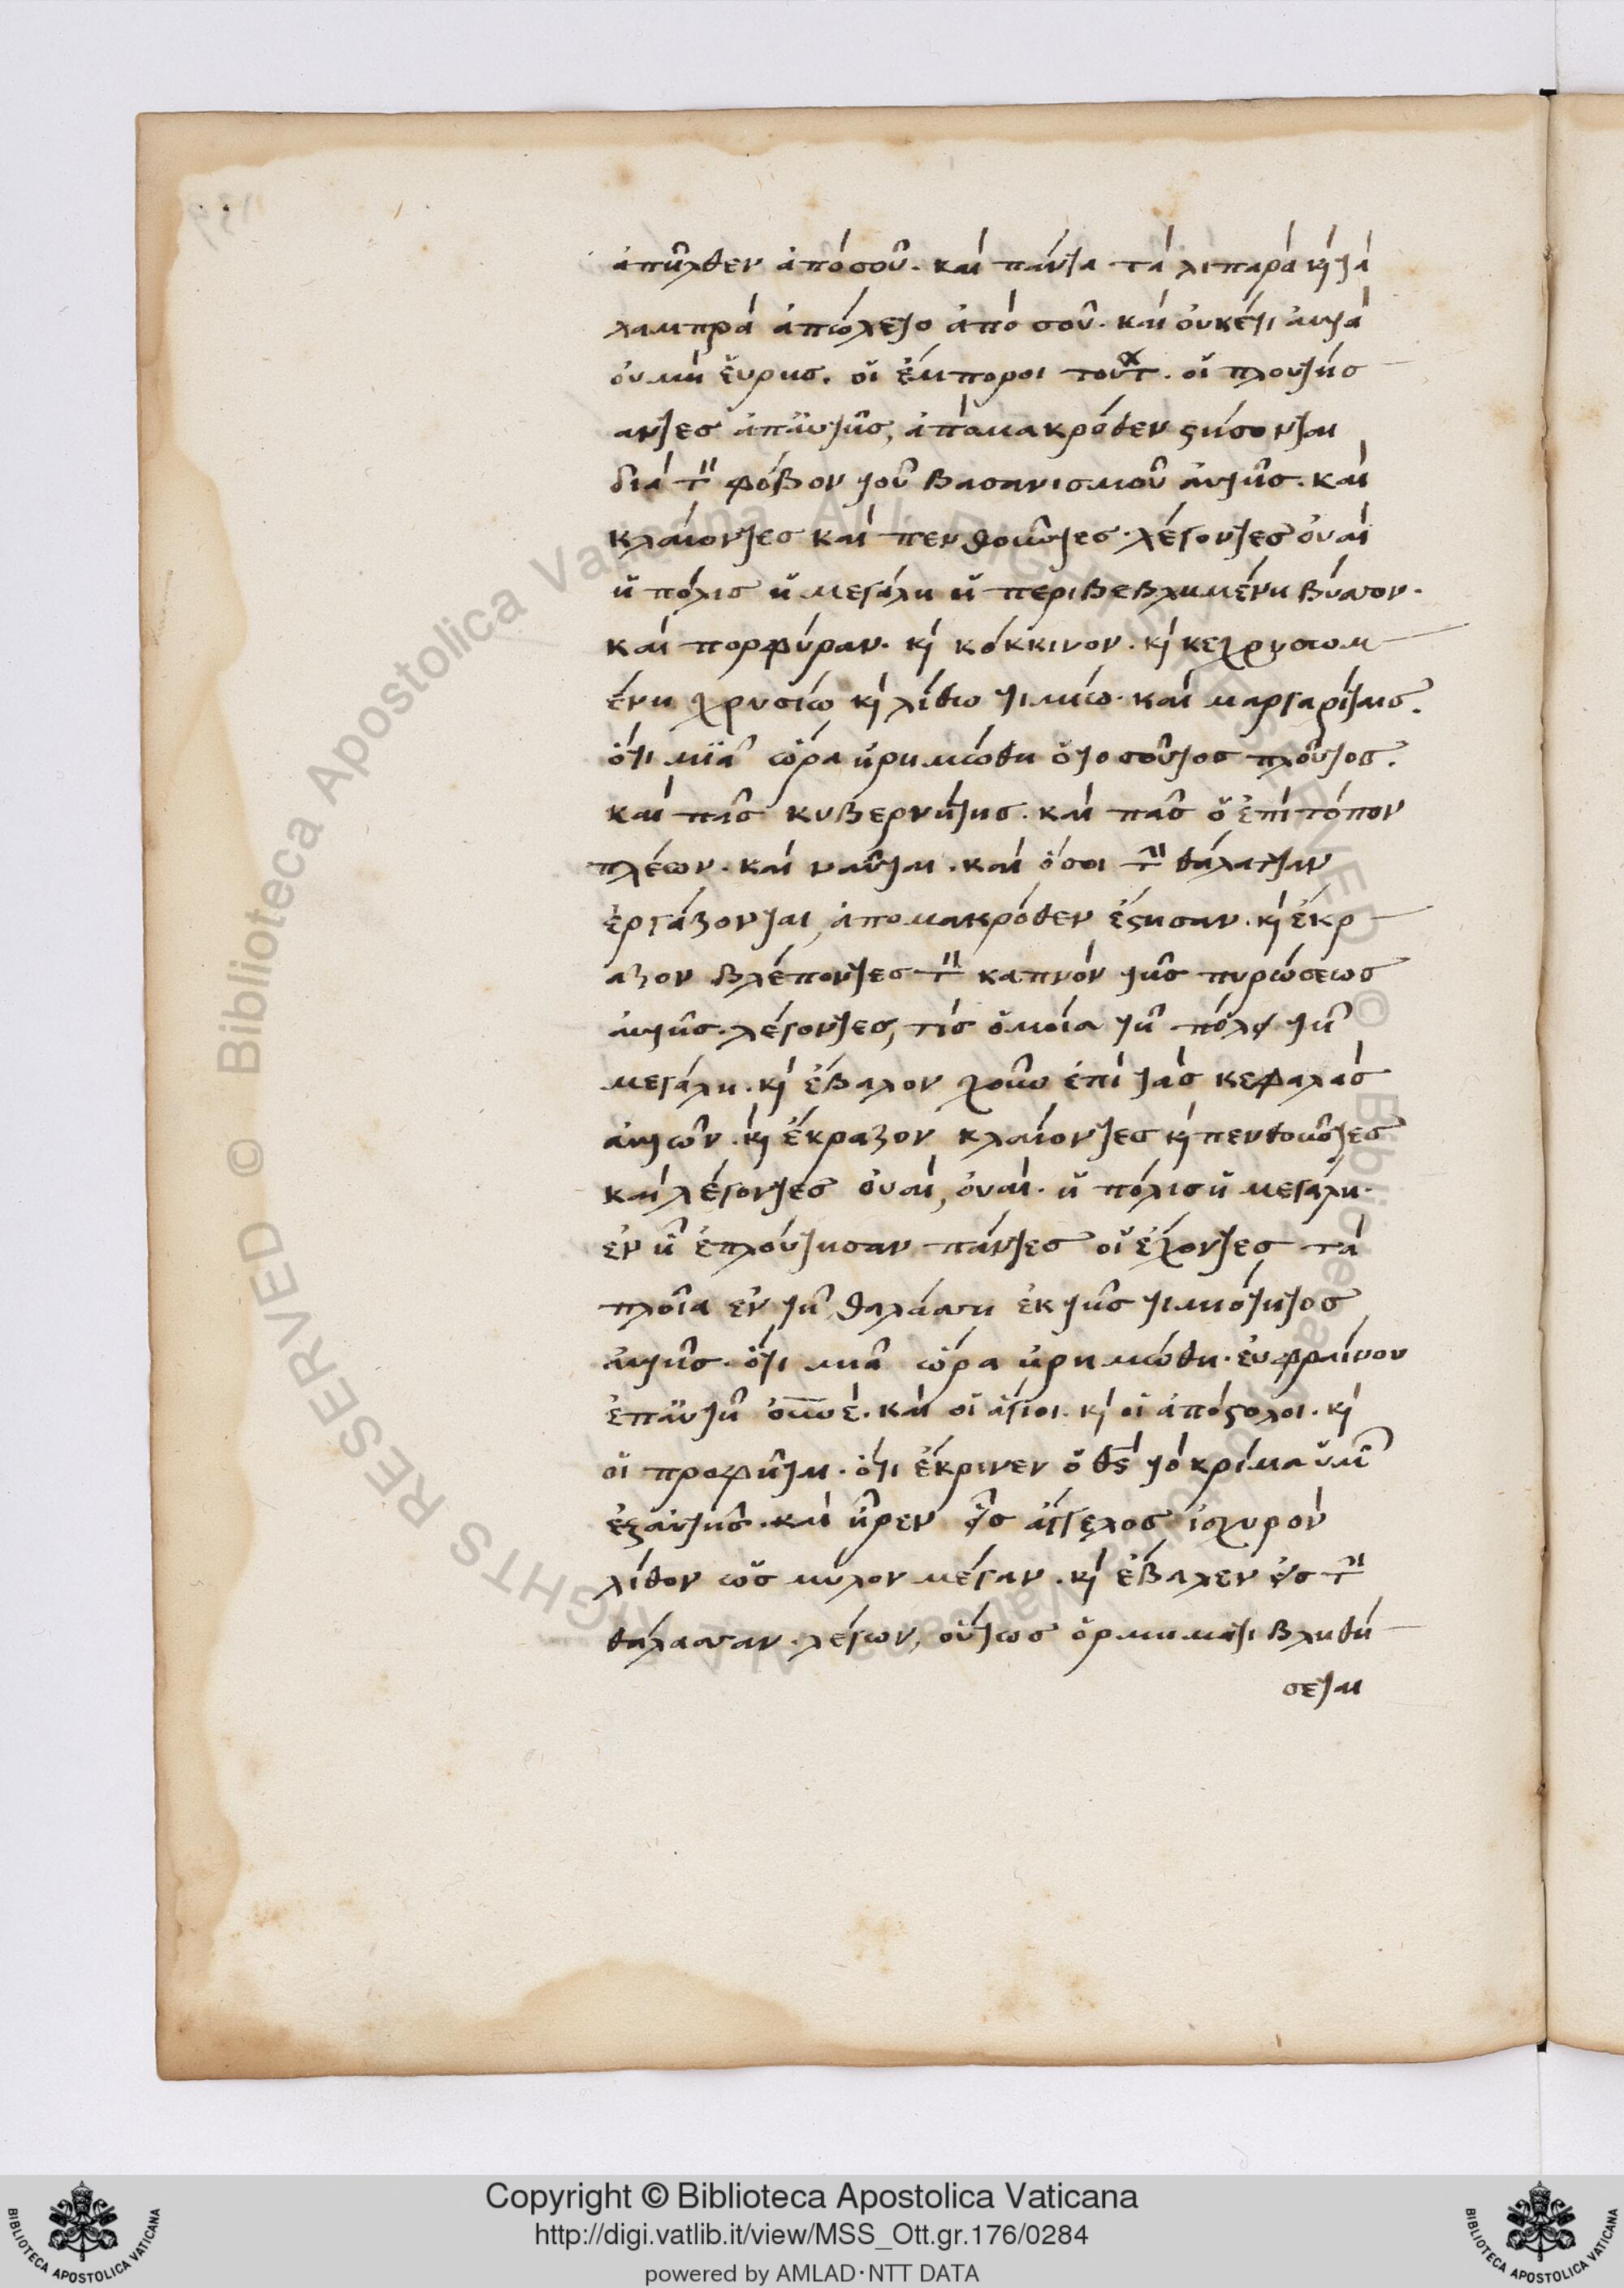 ἀπῆλθεν ἀπό σοῦ. καὶ πάντα τὰ λιπαρὰ κὶ τὰ
λαμπρὰ ἀπώλετο ἀπό σοῦ. καὶ οὐκέτι ἀυτὰ
οὐ μὴ ἕυρης. οἱ ἔμποροι τούτ. οἱ πλουτήσ
αντες ἀπ᾽ἀυτῆς, ἀπὸ μακρόθεν στήσονται
διὰ τ̎ φόβον τοῦ βασανισμοῦ ἀυτῆς. καὶ
κλαίοντες καὶ πενθοῦντες. λέγοντες οὐαὶ
ἡ πόλις ἡ μεγάλη ἡ περιβεβλημένη βύσσον.
καὶ πορφύραν. κὶ κόκκινον. κὶ κεχρυσωμ
ένη χρυσίω κὶ λίθω τιμίω. καὶ μαργαρίταις.
ὅτι μϊᾶ ὥρα ἠρημώθη ὁ τοσοῦτος πλοῦτος.
καὶ πᾶς κυβερνήτης. καὶ πᾶς ὁ ἐπὶ τόπον
πλέων. καὶ ναῦται. καὶ ὅσοι τ̎ θάλατταν
ἐργάζονται, ἀπομακρόθεν ἔστησαν. κὶ ἔκρ
αζον βλέποντες τ̎ καπνὸν τῆς πυρώσεως
ἀυτῆς. λέγοντες, τίς ὁμοία τῆ πόλει τῆ
μεγάλη. κὶ ἔβαλον χοῦν ἐπὶ τὰς κεφαλὰς
ἀυτῶν. κὶ ἔκραζον κλαίοντες κὶ πενθοῦντες
καὶ λέγοντες οὐαὶ, οὐαὶ. ἡ πόλις ἡ μεγάλη.
ἐν ἧ ἐπλούτησαν πάντες οἱ ἔχοντες τὰ
πλοῖα ἐν τῆ θαλάσση ἐκ τῆς τιμιότητος
ἀυτῆς. ὅτι μιᾶ ὥρα ἠρημώθη. ἐυφραίνου
ἐπ᾽ἀυτῆ οὐνέ. καὶ οἱ ἅγιοι. κὶ οἱ ἀπόστολοι. κὶ
οἱ προφῆται. ὅτι ἔκρινεν ὁ θς τὸ κρίμα ὑμῶν
ἐξ ἀυτῆς. καὶ ἦρεν εἷς ἄγγελος ἰσχυρὸν
λίθον ὡς μύλον μέγαν. κὶ ἔβαλεν εἰς τ̎
θάλασσαν. λέγων, οὕτως ὁρμήματι βληθή
σεται
Copyright © Biblioteca Apostolica Vaticana
http://digi.vatlib.it/view/MSS_Ott.gr.176/0284
powered by AMLAD·NTT DATA